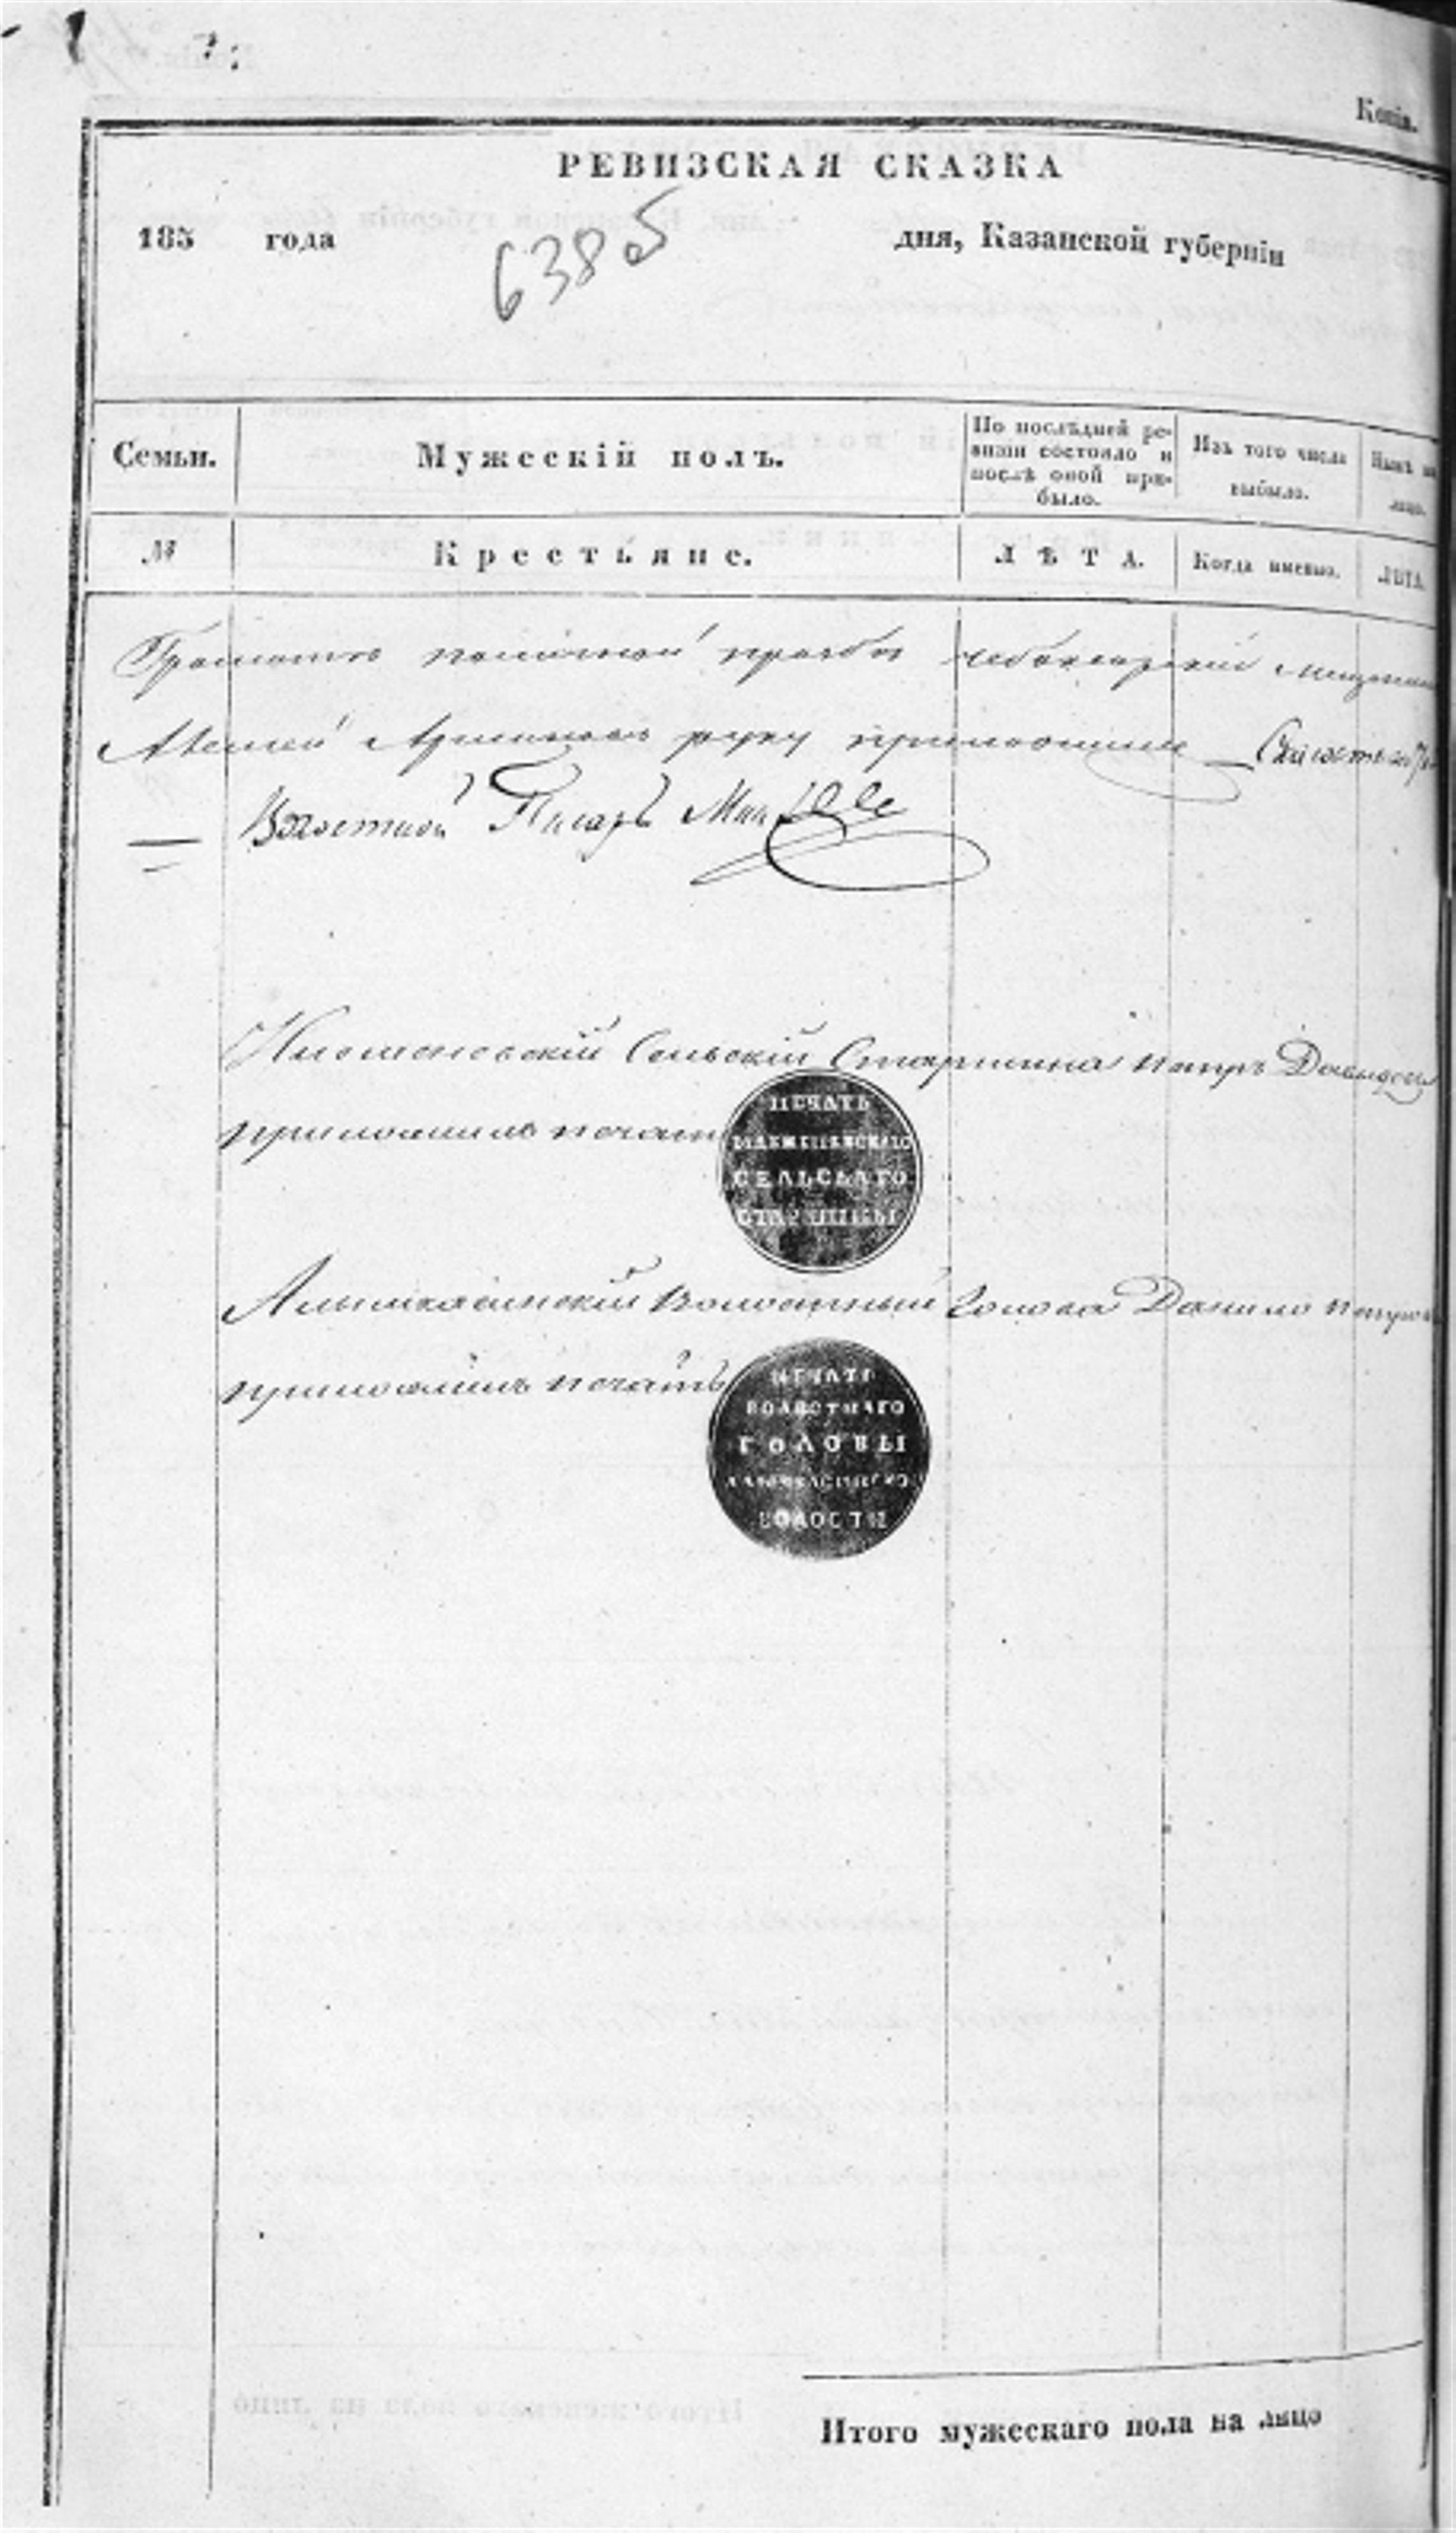 Копія.
РЕВИЗСКАЯ СКАЗКА
185 года дня, Казанской губерніи
638 об
Семьи.
Мужескій полъ.
По послѣдней ре-
визіи состояло и
послѣ оной при-
было.
Изъ того числа
выбыло.
Нынѣ на
лицо.
№
Крестьяне.
ЛѢТА.
Когда именно.
ЛѢТА.
личной прозбѣ чебоксарскій
руку приложилъ
Волостной Писарь
Сельскій Старшина Петръ Давыдовъ
приложилъ печать
ПЕЧАТЬ
СЕЛЬСКАГО
СТАРШИНЫ
Волостный Голова Данило Петровъ
приложилъ печать
ПЕЧАТЬ
ВОЛОСТНАГО
ГОЛОВЫ
ВОЛОСТИ
Итого мужескаго пола на лицо